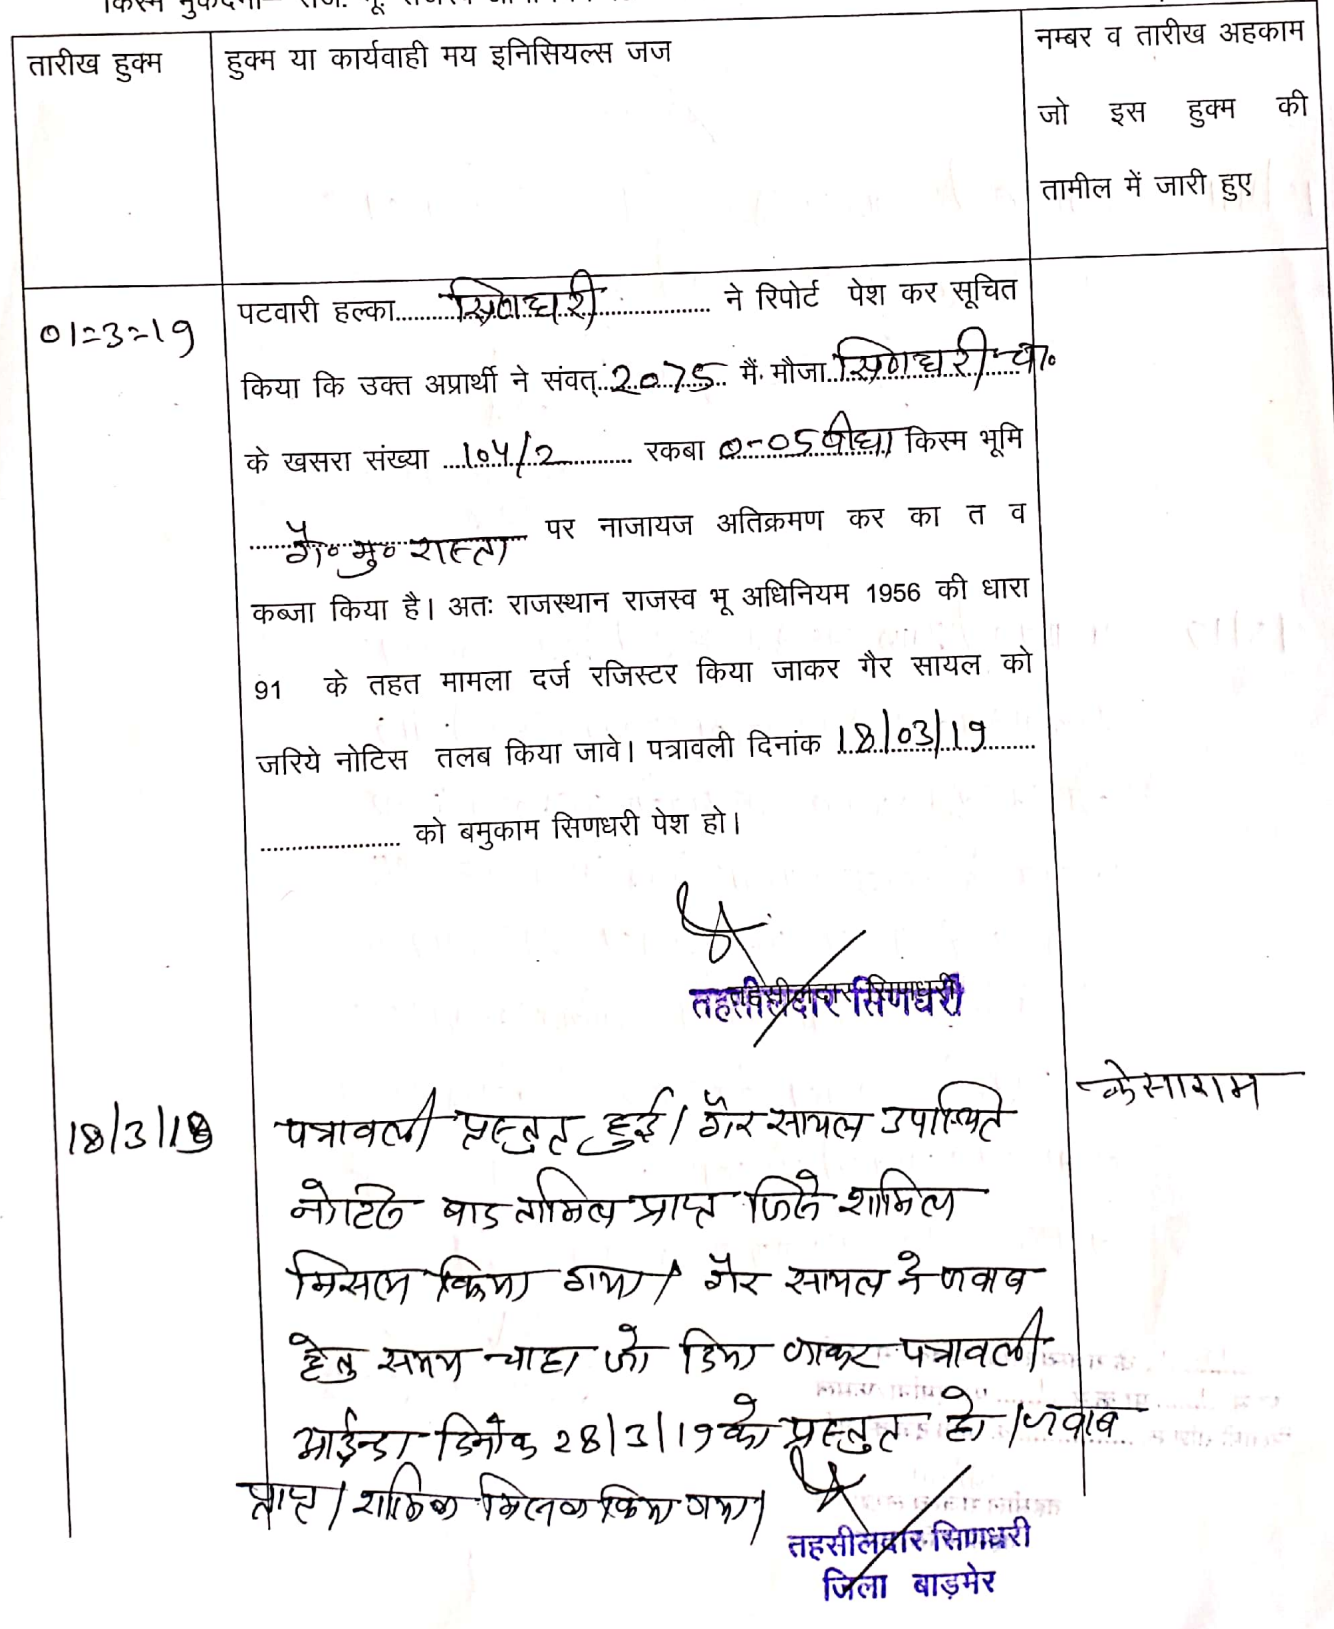 किस्म मुकदमा– राज. भू. राजस्व
तारीख हुक्म
हुक्म या कार्यवाही मय इनिसियल्स जज
नम्बर व तारीख अहकाम
जो इस हुक्म की
तामील में जारी हुए
01=3=19
पटवारी हल्का......सिणधरी............... ने रिपोर्ट पेश कर सूचित
किया कि उक्त अप्रार्थी ने संवत् 2075 में मौजा सिणधरी चा०
के खसरा संख्या ....104/2............ रकबा 0-05 बीघा किस्म भूमि
गै० मु० रास्ता पर नाजायज अतिक्रमण कर का त व
कब्जा किया है। अतः राजस्थान राजस्व भू अधिनियम 1956 की धारा
91 के तहत मामला दर्ज रजिस्टर किया जाकर गैर सायल को
जरिये नोटिस तलब किया जावे। पत्रावली दिनांक 18/03/19
..................... को बमुकाम सिणधरी पेश हो।
तहसीलदार सिणधरी
केसाराम
18/3/19
पत्रावली प्रस्तुत हुई। गैर सायल उपस्थित
नोटिस बाद तामिल प्राप्त जिसे शामिल
मिसल किया गया। गैर सायल ने जवाब
हेतु समय चाहा जो दिया जाकर पत्रावली
आईन्दा दिनांक 28/3/19 को प्रस्तुत हो। जवाब
प्राप्त। शामिल मिसल किया गया।
तहसीलदार सिणधरी
जिला बाड़मेर